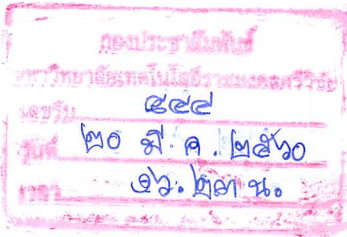 กองประชาสัมพันธ์
มหาวิทยาลัยเทคโนโลยีราชมงคลศรีวิชัย
เลขรับ ๕๔๔
วันที่ ๒๐ มี.ค. ๒๕๖๐
เวลา ๑๖.๒๓ น.